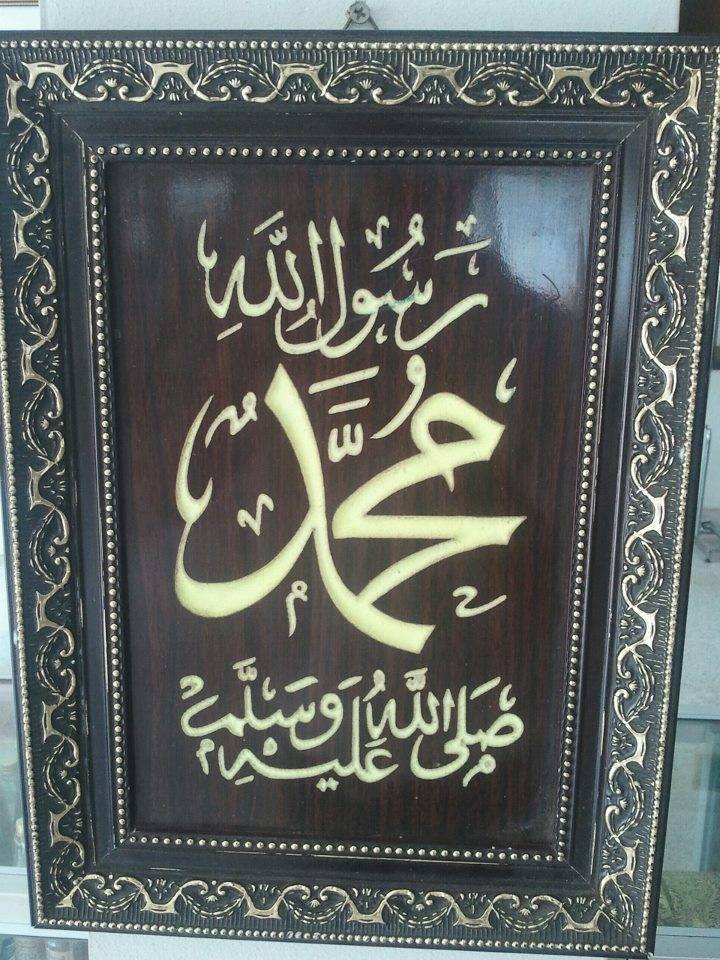 رَسُولُ اللَّهِ
مُحَمَّدٌ
صَلَّى اللَّهُ عَلَيْهِ وَسَلَّمَ